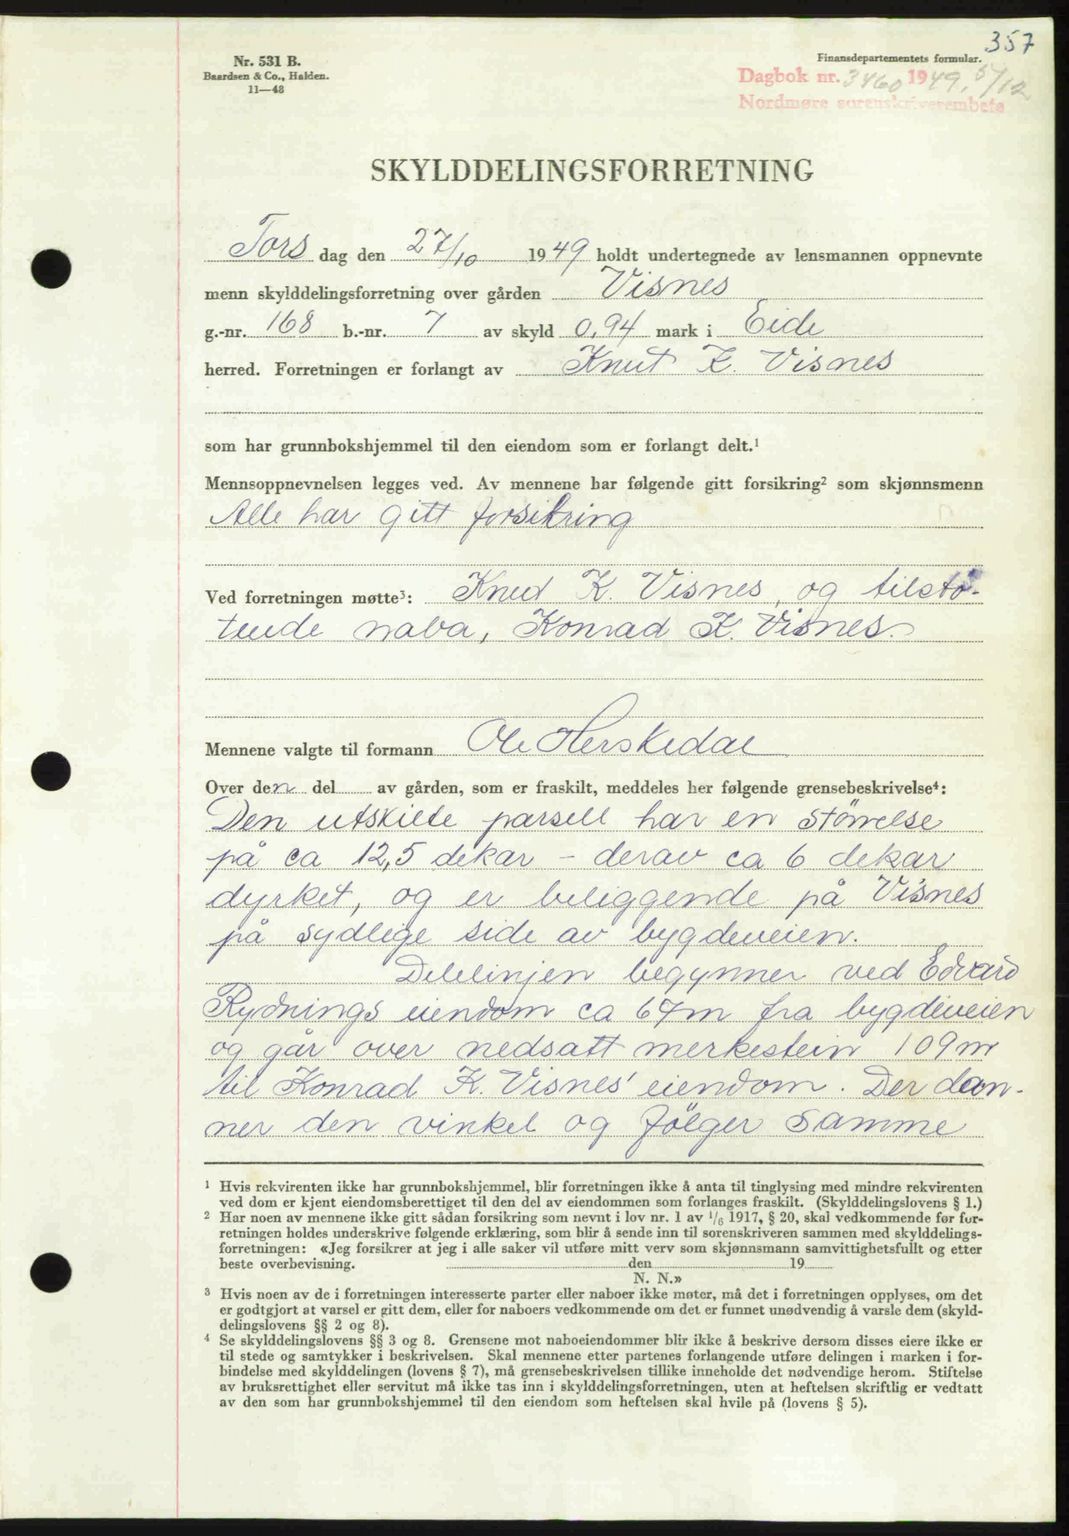 357
Nr. 531 B.
Baardsen & Co., Halden.
11—48
Finansdepartementets formular.
Dagbok nr. 3460 1949, 5/12
Nordmøre sorenskriverembete
SKYLDDELINGSFORRETNING
Tors dag den 27/10 1949 holdt undertegnede av lensmannen oppnevnte
menn skylddelingsforretning over gården Visnes
g.-nr. 168 b.-nr. 7 av skyld 0,94 mark i Eide
herred. Forretningen er forlangt av Knut K. Visnes
som har grunnbokshjemmel til den eiendom som er forlangt delt.¹
Mennsoppnevnelsen legges ved. Av mennene har følgende gitt forsikring² som skjønnsmenn
Alle har gitt forsikring
Ved forretningen møtte³: Knud K. Visnes, og tilstø-
tende naba, Konrad K. Visnes.
Mennene valgte til formann Ole Herskedal
Over den del av gården, som er fraskilt, meddeles her følgende grensebeskrivelse⁴:
Den utskilte parsell har en størrelse
på ca 12,5 dekar – derav ca 6 dekar
dyrket, og er beliggende på Visnes
på sydlege side av bygdeveien.
Delelinjen begynner ved Edvard
Rydnings eiendom ca 67m fra bygdeveien
og går over nedsatt merkestein 109m
til Konrad K. Visnes' eiendom. Der dan-
ner den vinkel og følger samme
¹ Hvis rekvirenten ikke har grunnbokshjemmel, blir forretningen ikke å anta til tinglysing med mindre rekvirenten
ved dom er kjent eiendomsberettiget til den del av eiendommen som forlanges fraskilt. (Skylddelingslovens § 1.)
² Har noen av mennene ikke gitt sådan forsikring som nevnt i lov nr. 1 av ¹/₆ 1917, § 20, skal vedkommende før for-
retningen holdes underskrive følgende erklæring, som blir å sende inn til sorenskriveren sammen med skylddelings-
forretningen: «Jeg forsikrer at jeg i alle saker vil utføre mitt verv som skjønnsmann samvittighetsfullt og etter
beste overbevisning. den 19
N. N.»
³ Hvis noen av de i forretningen interesserte parter eller naboer ikke møter, må det i forretningen opplyses, om det
er godtgjort at varsel er gitt dem, eller for naboers vedkommende om det er funnet unødvendig å varsle dem (skyld-
delingslovens §§ 2 og 8).
⁴ Se skylddelingslovens §§ 3 og 8. Grensene mot naboeiendommer blir ikke å beskrive dersom disses eiere ikke er
til stede og samtykker i beskrivelsen. Skal mennene etter partenes forlangende utføre delingen i marken i for-
bindelse med skylddelingen (lovens § 7), må grensebeskrivelsen tillike inneholde det nødvendige herom. Stiftelse
av bruksrettighet eller servitut må ikke tas inn i skylddelingsforretningen, uten at heftelsen skriftlig er vedtatt
av den som har grunnbokshjemmel til den eiendom som heftelsen skal hvile på (lovens § 5).